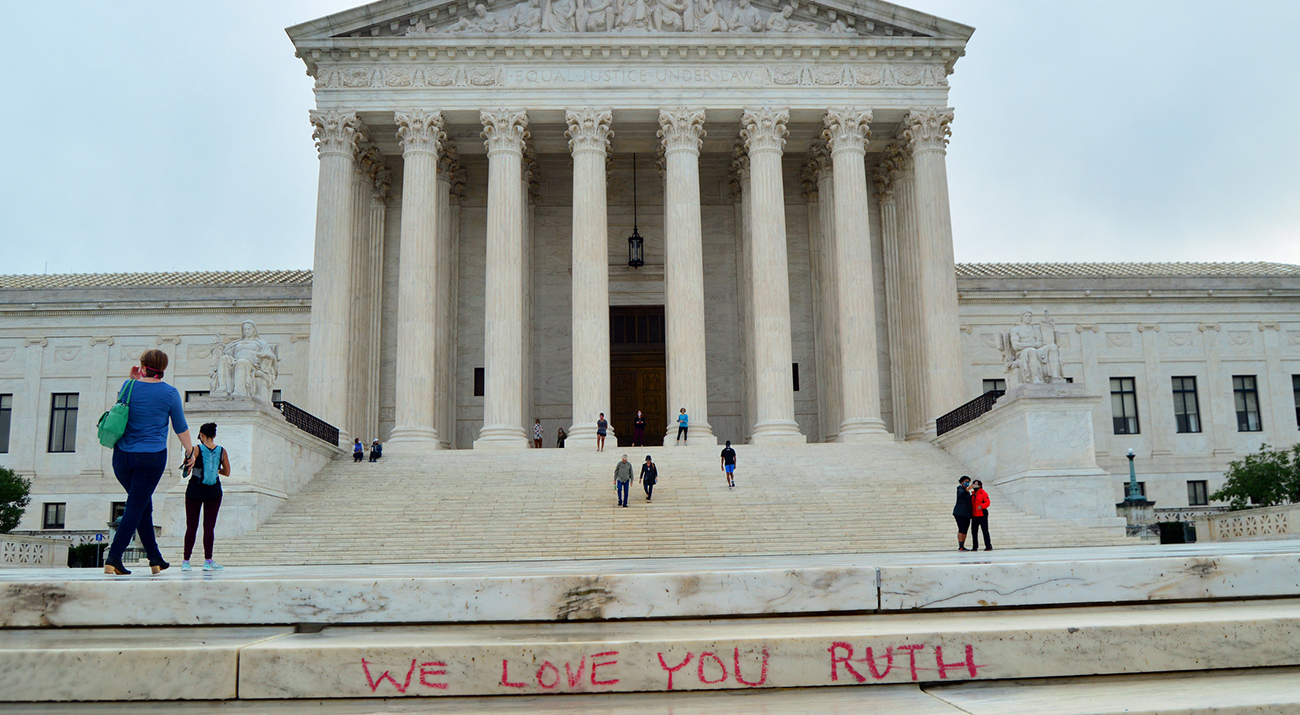 EQUAL JUSTICE UNDER LAW
WE LOVE YOU RUTH